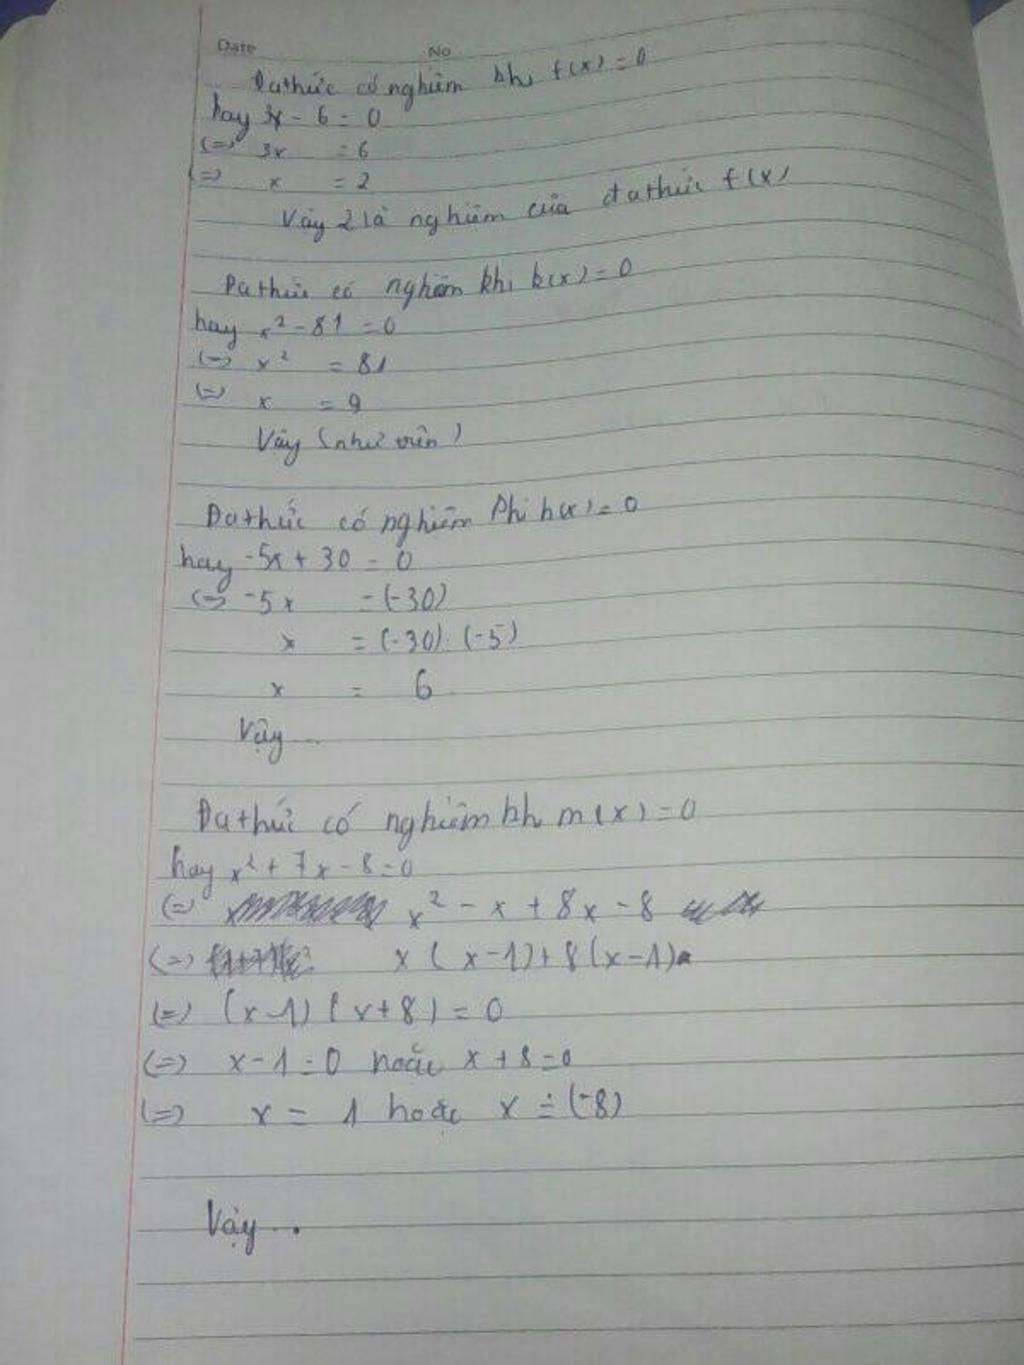 Date No
Đa thức có nghiệm khi f(x) = 0
hay 3x - 6 = 0
(=) 3x = 6
(=) x = 2
Vậy 2 là nghiệm của đa thức f(x)
Đa thức có nghiệm khi k(x) = 0
hay x² - 81 = 0
(=) x² = 81
(=) x = 9
Vậy (như trên)
Đa thức có nghiệm khi h(x) = 0
hay -5x + 30 = 0
(=) -5x = (-30)
x = (-30) : (-5)
x = 6
Vậy ...
Đa thức có nghiệm khi m(x) = 0
hay x² + 7x - 8 = 0
(=) x² - x + 8x - 8
(=) x(x-1) + 8(x-1)
(=) (x-1)(x+8) = 0
(=) x - 1 = 0 hoặc x + 8 = 0
(=) x = 1 hoặc x = (-8)
Vậy ...